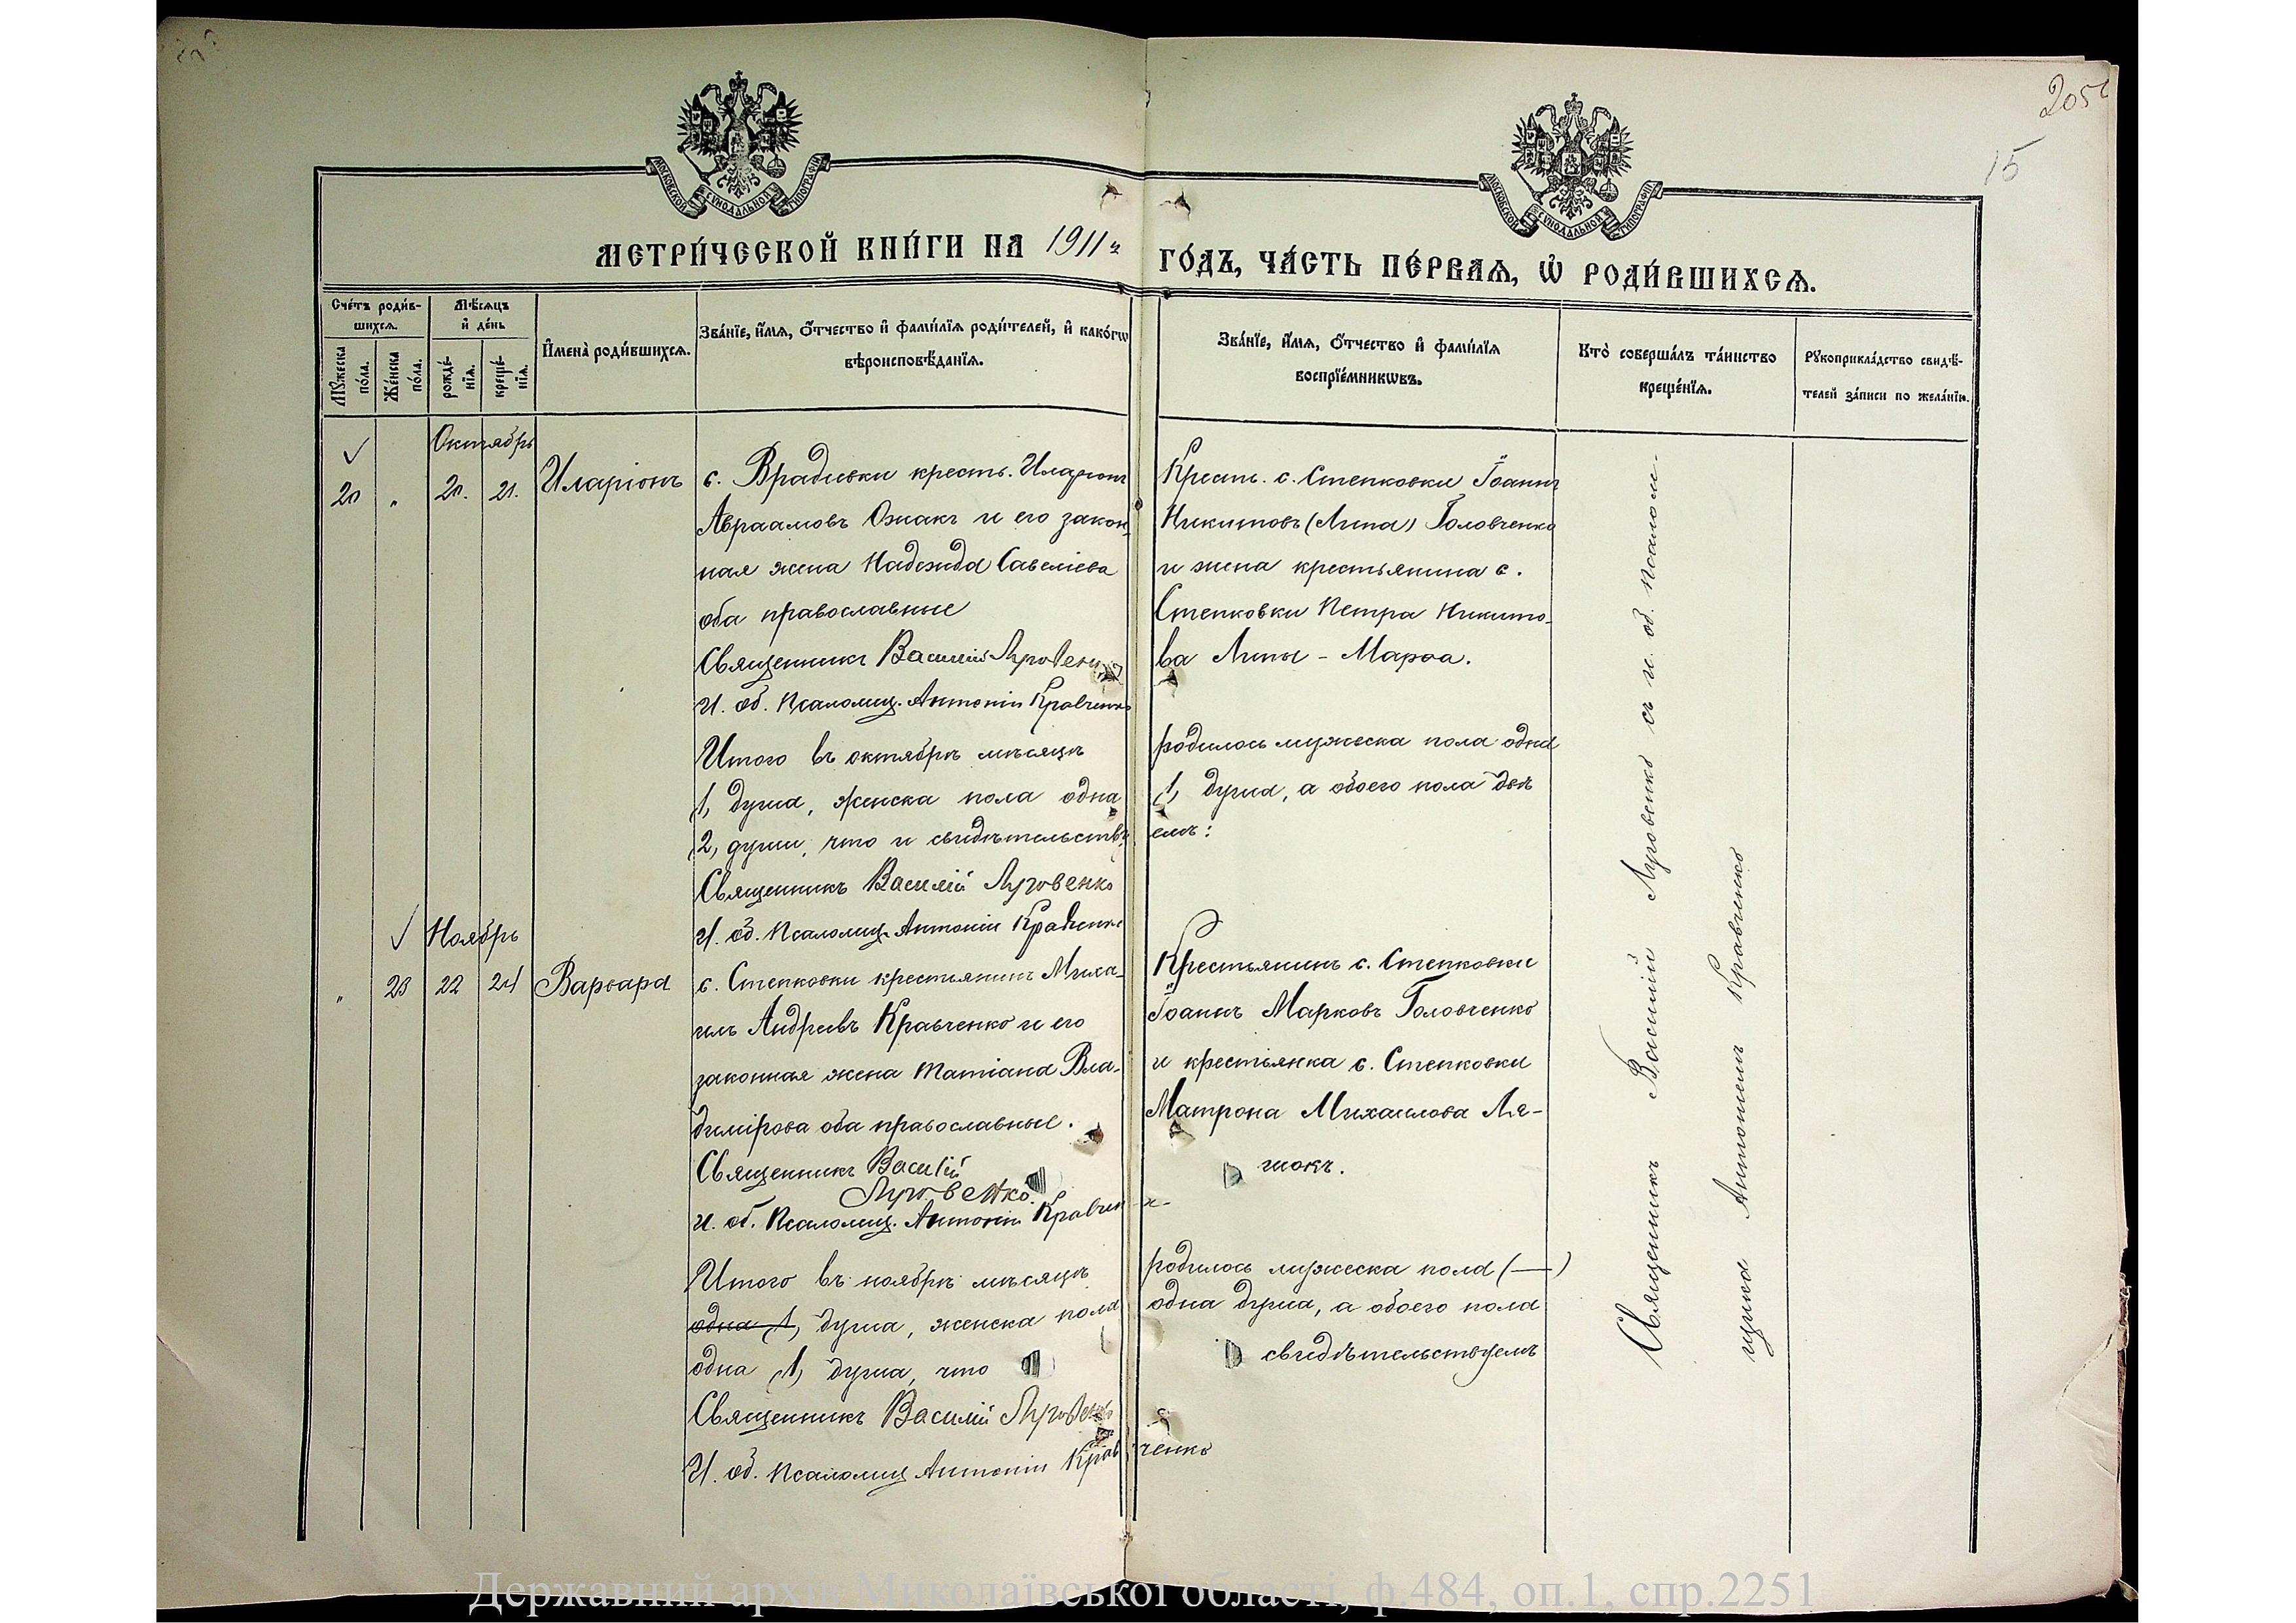 205
15
МОСКОВСКОЙ СѴНОДАЛЬНОЙ ТИПОГРАФІИ
МОСКОВСКОЙ СѴНОДАЛЬНОЙ ТИПОГРАФІИ
МЕТРИ́ЧЕСКОЙ КНИ́ГИ НА 1911 г.
ГО́ДЪ, ЧА́СТЬ ПЕ́РВАѦ, Ѡ҆ РОДИ́ВШИХСѦ.
Сче́тъ роди́в-
шихсѧ.
Мѣ́сѧцъ
и҆ де́нь
Мꙋ́жеска по́ла.
Же́нска по́ла.
рожде́-
нїѧ.
креще́-
нїѧ.
И҆мена̀ роди́вшихсѧ.
Зва́нїе, и҆́мѧ, ѻ҆́тчество и҆ фамі́лїѧ роди́телей, и҆ како́гѡ
вѣроисповѣ́данїѧ.
Зва́нїе, и҆́мѧ, ѻ҆́тчество и҆ фамі́лїѧ
воспрїе́мникѡвъ.
Кто̀ соверша́лъ та́инство
креще́нїѧ.
Рꙋкоприкла́дство свидѣ́-
телей за́писи по жела́нїю.
Октябрь
20 „ 20. 21. Иларіонъ
с. Врадиевки кресть. Иларіонъ
Авраамовъ Ожакъ и его закон-
ная жена Надежда Савеліева
оба православные
Священникъ Василій Луговенко
И. об. Псаломщ. Антоній Кравченко
Кресть. с. Степковки Іоаннъ
Никитовъ (Липа) Головченко
и жена крестьянина с.
Степковки Петра Никито-
ва Липы - Марѳа.
Итого въ октябрѣ мѣсяцѣ
1, душа, женска пола одна
2, души, что и свидѣтельству
Священникъ Василій Луговенко
И. об. Псаломщ. Антоній Кравченко
родилось мужеска пола одна
1, душа, а обоего пола двѣ
емъ:
Ноябрь
„ 23 22 24 Варвара
с. Степковки крестьянинъ Миха-
илъ Андреевъ Кравченко и его
законная жена Татіана Вла-
димірова оба православные.
Священникъ Василій
Луговенко.
И. об. Псаломщ. Антоній Кравчен
Крестьянинъ с. Степковки
Іоаннъ Марковъ Головченко
и крестьянка с. Степковки
Матрона Михаилова Ля-
шокъ.
Итого въ ноябрѣ мѣсяцѣ
одна 1, душа, женска пола
одна 1, душа, что
Священникъ Василій Луговенко
И. об. Псаломщ Антоній Крав
родилось мужеска пола (—)
одна душа, а обоего пола
свидѣтельствуемъ
ченко
Священникъ Василій Луговенко съ и. об. Псалом-
щика Антоніемъ Кравченко
Державний архів Миколаївської області, ф.484, оп.1, спр.2251